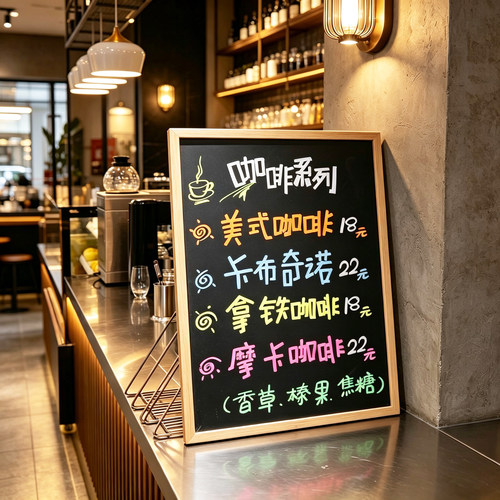 咖啡系列
美式咖啡 18元
卡布奇诺 22元
拿铁咖啡 18元
摩卡咖啡 22元
(香草.榛果.焦糖)